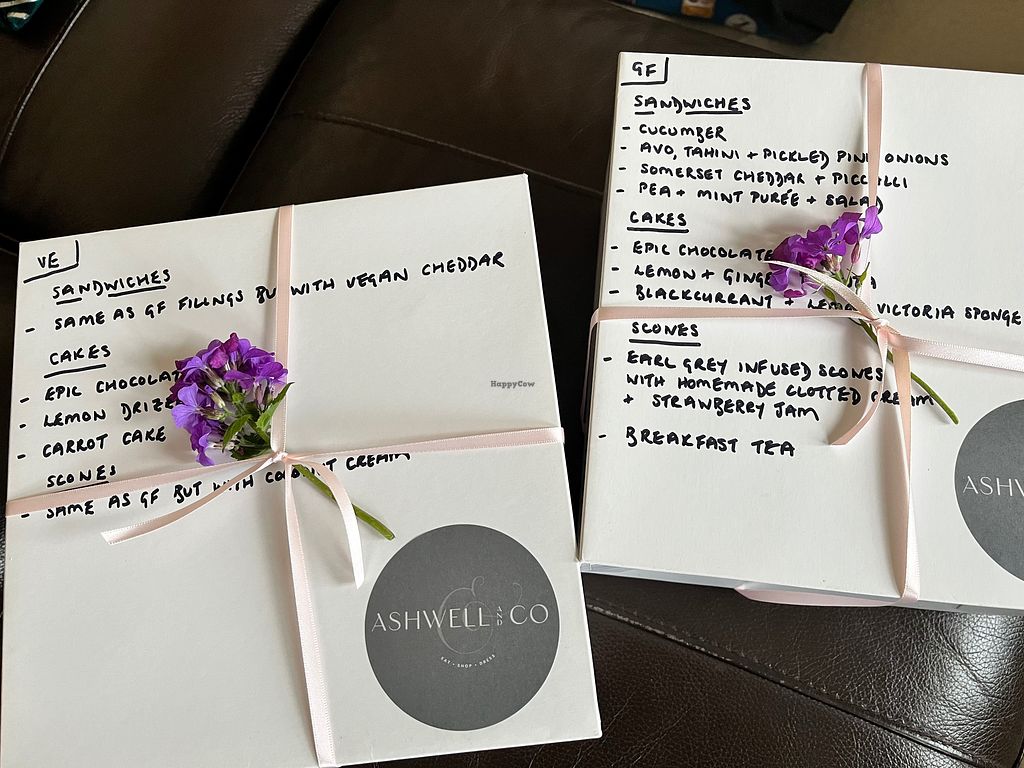 VE
SANDWICHES
- SAME AS GF FILLNGS BUT WITH VEGAN CHEDDAR
CAKES
- EPIC CHOCOLATE
- LEMON DRIZZLE
- CARROT CAKE
SCONES
- SAME AS GF BUT WITH COCONUT CREAM
ASHWELL AND CO
EAT • SHOP • DRESS
HappyCow
GF
SANDWICHES
- CUCUMBER
- AVO, TAHINI + PICKLED PINK ONIONS
- SOMERSET CHEDDAR + PICCALILLI
- PEA + MINT PURÉE + SALAD
CAKES
- EPIC CHOCOLATE
- LEMON + GINGER
- BLACKCURRANT + LEMON VICTORIA SPONGE
SCONES
- EARL GREY INFUSED SCONES
WITH HOMEMADE CLOTTED CREAM
+ STRAWBERRY JAM
- BREAKFAST TEA
ASHW